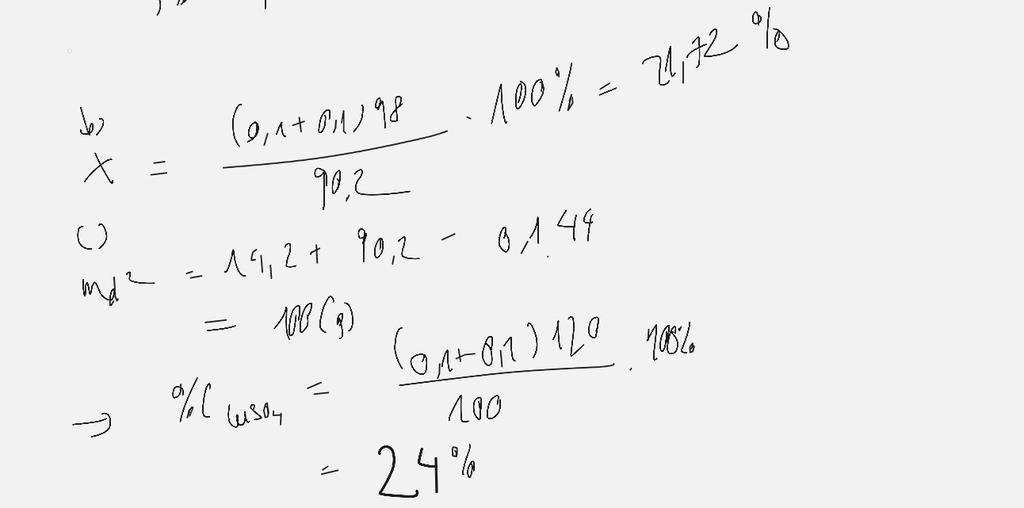 b)
X = (0,1+0,1)98 / 90,2 . 100% = 21,72%
c)
md² = 14,2 + 90,2 - 0,1.44
= 100(g)
→ %C MgSO4 = (0,1+0,1)120 / 100 . 100%
= 24%